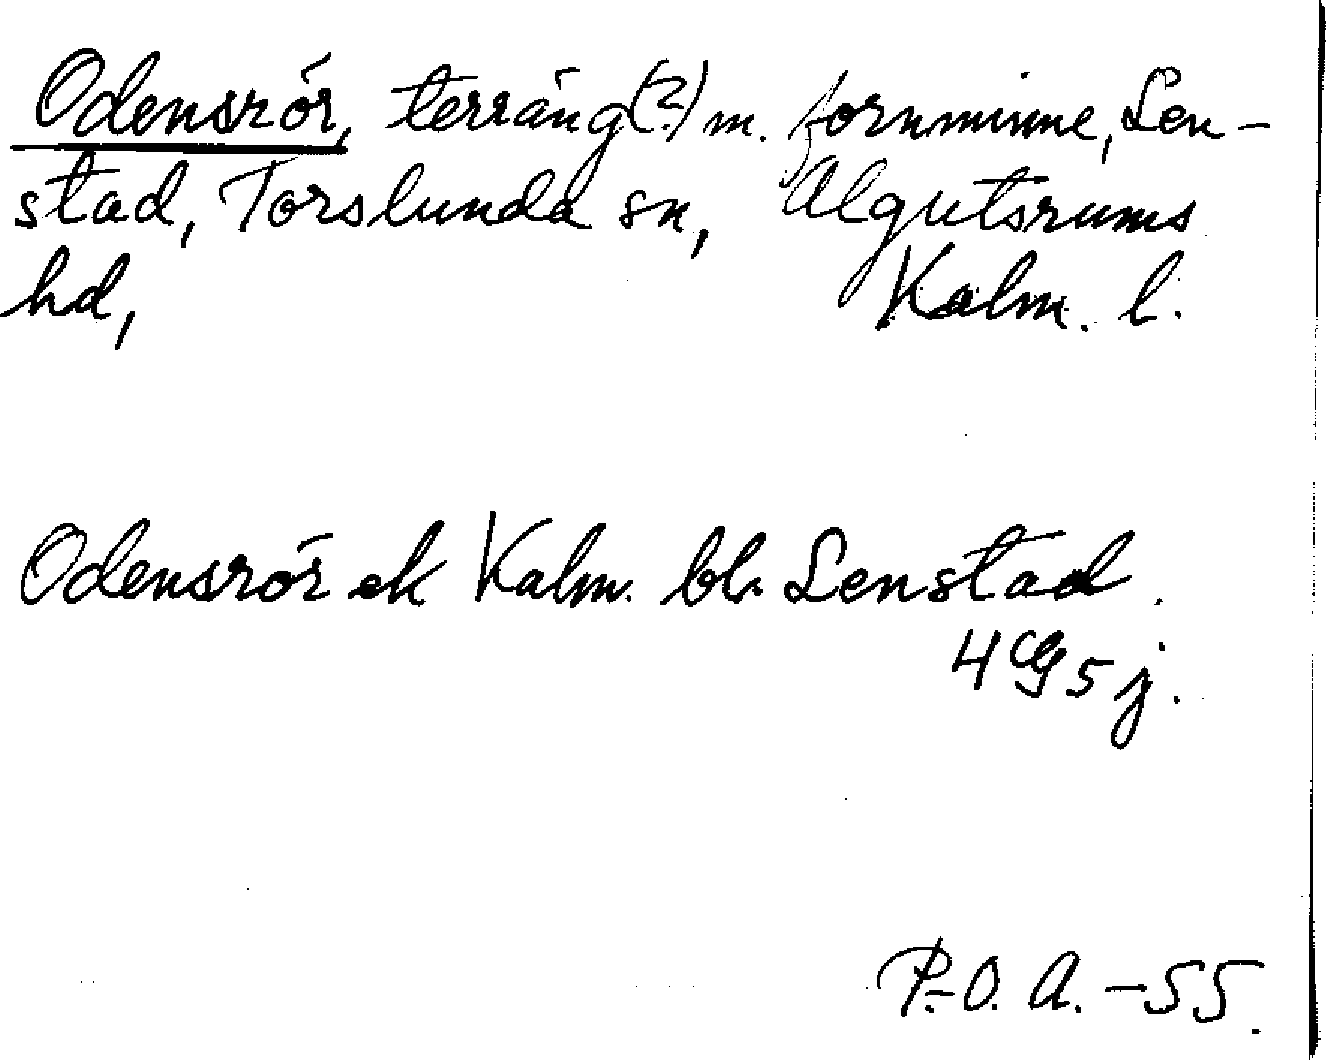 Odensrör, terräng(?) m. fornminne, Len-
stad, Torslunda sn, Algutsrums
hd, Kalm. l.
Odensrör ek Kalm. bl. Lenstad.
4G5j.
P.-O. A. -55.